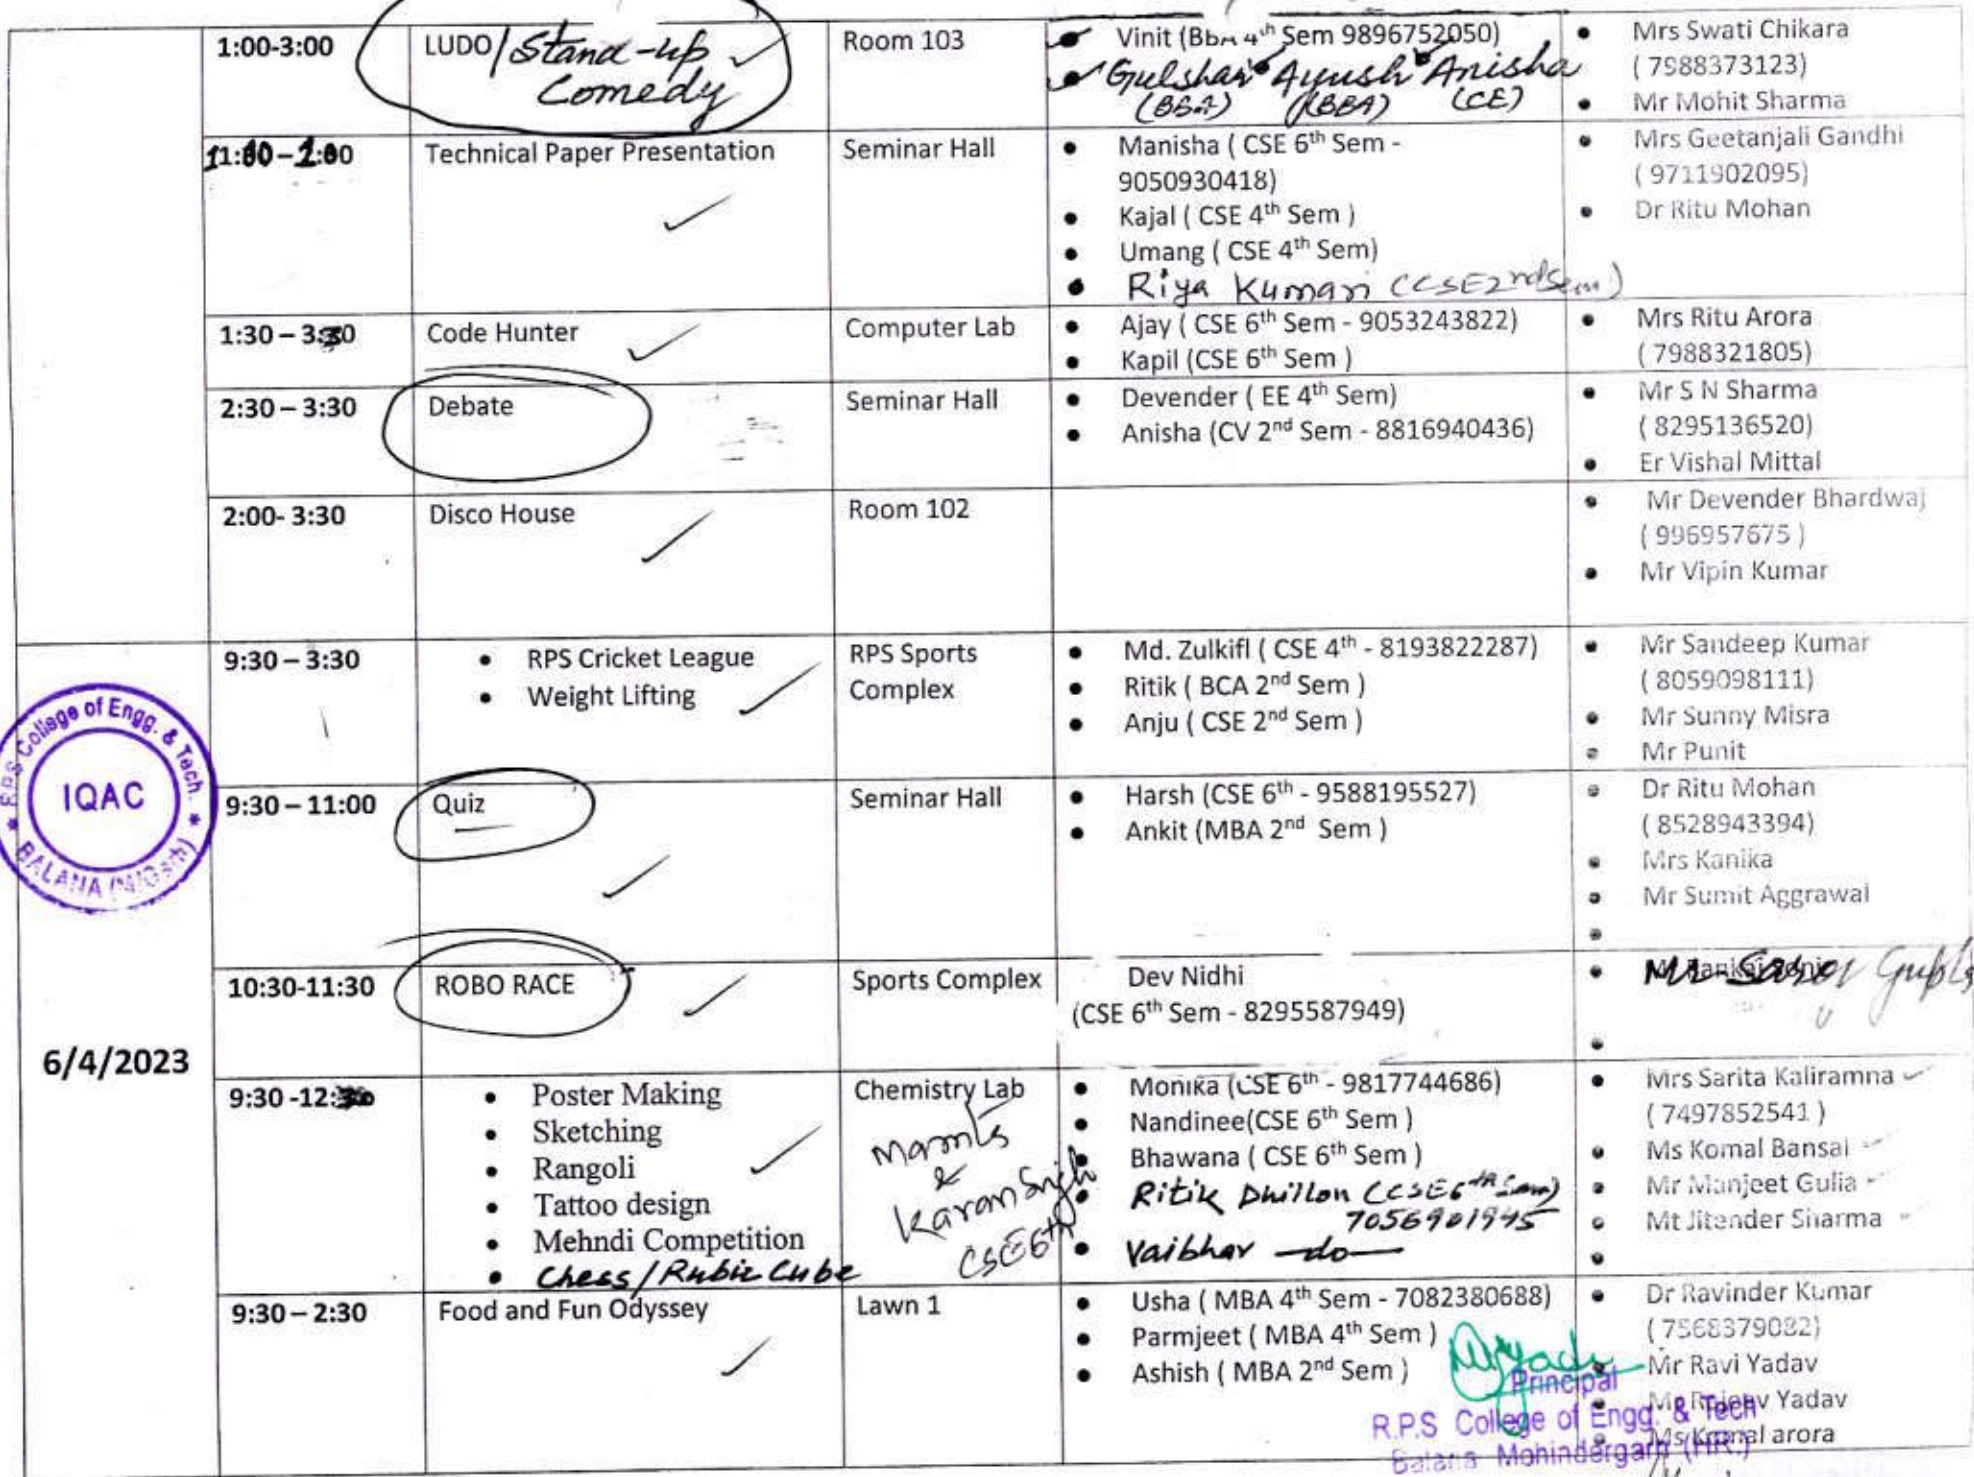 1:00-3:00 LUDO/Stand-up Comedy Room 103
Vinit (BBA 4th Sem 9896752050)
Gulshan (BBA) Ayush (BBA) Anisha (CE)
Mrs Swati Chikara
( 7988373123)
Mr Mohit Sharma
Technical Paper Presentation Seminar Hall
Manisha ( CSE 6th Sem -
9050930418)
Kajal ( CSE 4th Sem )
Umang ( CSE 4th Sem)
Riya Kumari (CSE 2nd Sem)
Mrs Geetanjali Gandhi
( 9711902095)
Dr Ritu Mohan
1:30 – 3:30 Code Hunter Computer Lab
Ajay ( CSE 6th Sem - 9053243822)
Kapil (CSE 6th Sem )
Mrs Ritu Arora
( 7988321805)
2:30 – 3:30 Debate Seminar Hall
Devender ( EE 4th Sem)
Anisha (CV 2nd Sem - 8816940436)
Mr S N Sharma
( 8295136520)
Er Vishal Mittal
2:00- 3:30 Disco House Room 102
Mr Devender Bhardwaj
( 996957675 )
Mr Vipin Kumar
6/4/2023
9:30 – 3:30
RPS Cricket League
Weight Lifting
RPS Sports
Complex
Md. Zulkifl ( CSE 4th - 8193822287)
Ritik ( BCA 2nd Sem )
Anju ( CSE 2nd Sem )
Mr Sandeep Kumar
( 8059098111)
Mr Sunny Misra
Mr Punit
9:30 – 11:00 Quiz Seminar Hall
Harsh (CSE 6th - 9588195527)
Ankit (MBA 2nd Sem )
Dr Ritu Mohan
( 8528943394)
Mrs Kanika
Mr Sumit Aggrawal
10:30-11:30 ROBO RACE Sports Complex
Dev Nidhi
(CSE 6th Sem - 8295587949)
Gupta
9:30 -12:
Poster Making
Sketching
Rangoli
Tattoo design
Mehndi Competition
Chess/Rubic Cube
Chemistry Lab
&
Karan Singh
CSE 6th
Monika (CSE 6th - 9817744686)
Nandinee(CSE 6th Sem )
Bhawana ( CSE 6th Sem )
Ritik Dhillon (CSE 6th Sem)
7056901945
Vaibhav —do—
Mrs Sarita Kaliramna
( 7497852541 )
Ms Komal Bansal
Mr Manjeet Gulia
Mt Jitender Sharma
9:30 – 2:30 Food and Fun Odyssey Lawn 1
Usha ( MBA 4th Sem - 7082380688)
Parmjeet ( MBA 4th Sem )
Ashish ( MBA 2nd Sem )
Dr Ravinder Kumar
( 7568379082)
Mr Ravi Yadav
Mr Rajeev Yadav
Ms Komal arora
R.P.S College of Engg. & Tech.
IQAC
BALANA
Principal
R.P.S College of Engg. & Tech
Balana Mohindergarh (HR.)